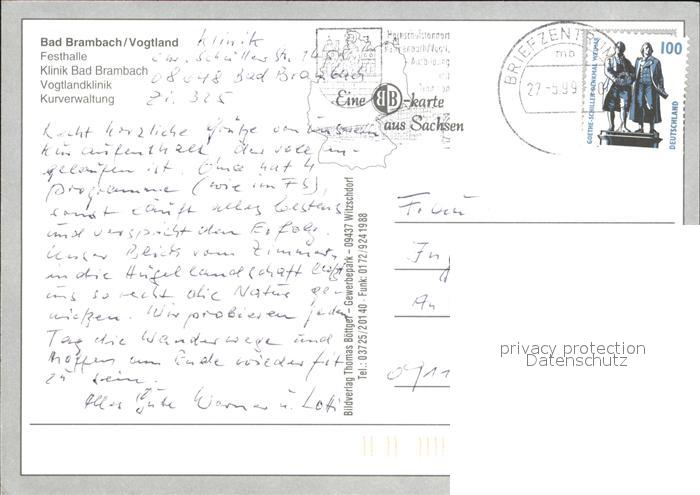 Bad Brambach/Vogtland
Festhalle
Klinik Bad Brambach
Vogtlandklinik
Kurverwaltung
Klinik
Chr. Schüller Str.
08648 Bad Brambach
Zi. 325
Recht herzliche Grüße von unserem
Kuraufenthalt der voll an-
gelaufen ist. Oma hat 4
Programme (wie im FS),
sonst läuft alles bestens
und verspricht den Erfolg.
Unser Blick vom Zimmer
in die Hügellandschaft läßt
uns so recht die Natur ge-
nießen. Wir probieren jeden
Tag die Wanderwege und
hoffen am Ende wieder fit
zu sein.
Alles Gute Werner u. Lotti
Eine BB-karte
aus Sachsen
BRIEFZENTRUM
mb
27.-5.99
100
GOETHE-SCHILLER-DENKMAL WEIMAR
DEUTSCHLAND
Bildverlag Thomas Böttger – Gewerbepark – 09437 Witzschdorf
Tel.: 03725/20140 · Funk: 0172/9241988
Frau
An
0911
privacy protection
Datenschutz